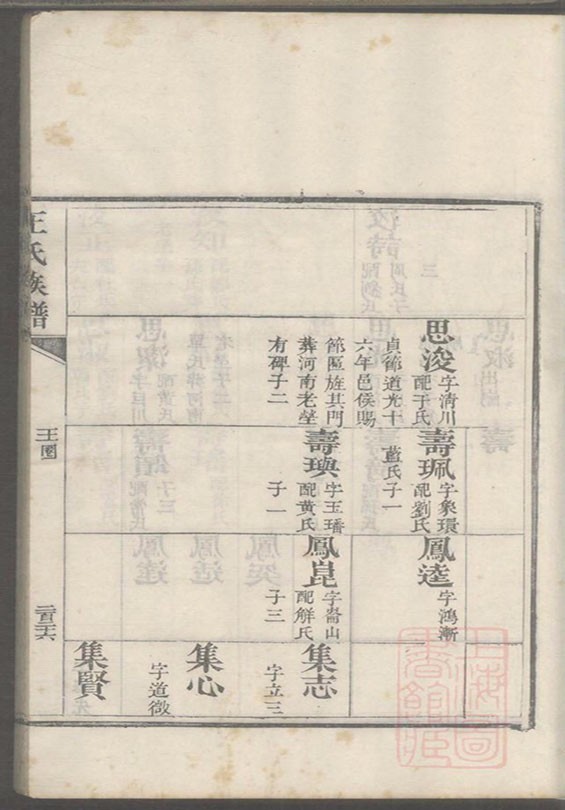 思浚
字清川
配于氏
貞節道光十
六年邑侯賜
節匾旌其門
葬河南老塋
有碑子二
壽珮
字象環
配劉氏
藍氏子一
壽璵
字玉璠
配黃氏
子一
鳳逵
字鴻漸
鳳崑
字崙山
配解氏
子三
集志
字立三
集心
字道微
集賢
王氏族譜
上海圖
書館藏